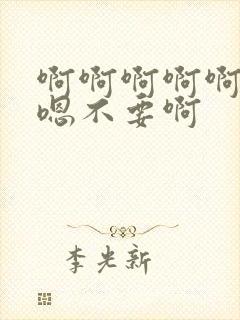 啊啊啊啊啊
嗯不要啊
李光新